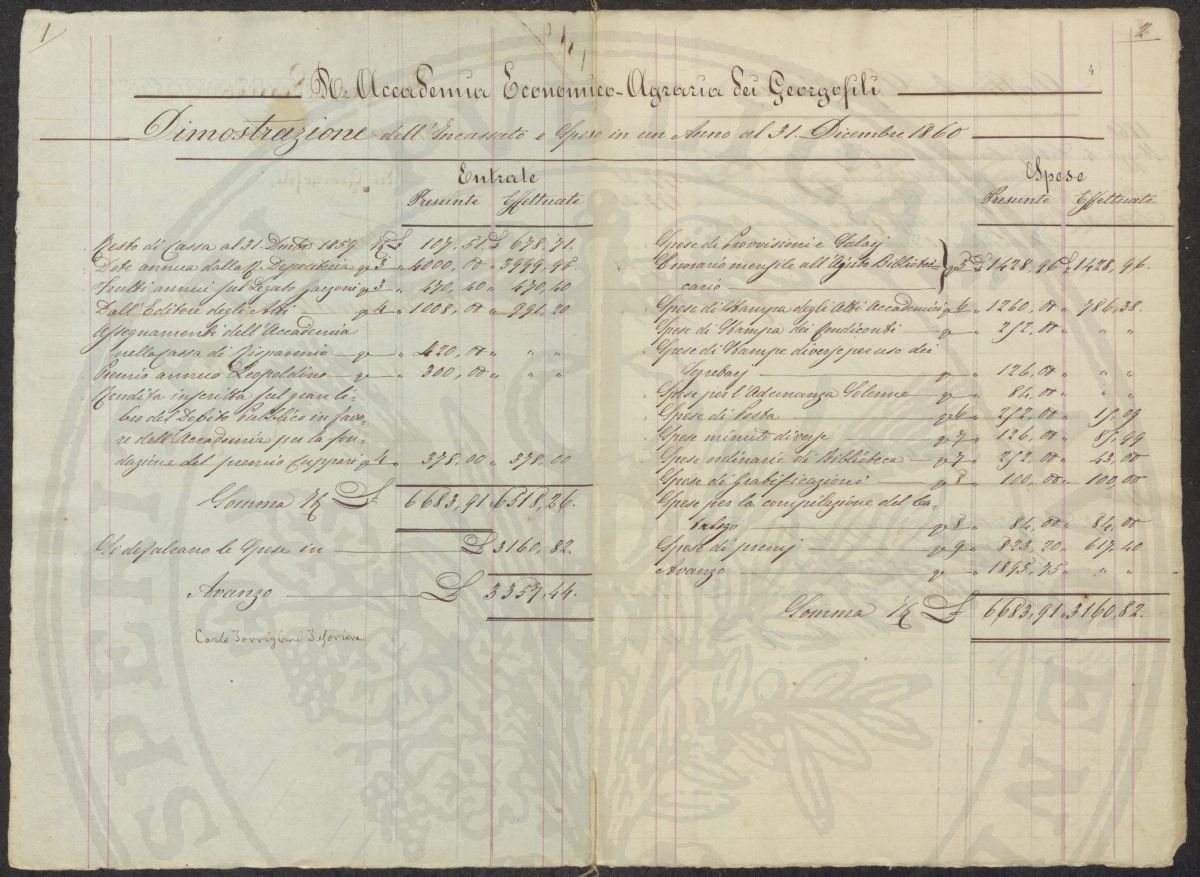 1
2
4
R. Accademia Economico-Agraria dei Georgofili
Dimostrazione dell'Incassato e Speso in un Anno al 31. Dicembre 1860
Entrate
Presunte Effettuate
Resto di Cassa al 31. Dmbre 1859 £ 107,51 £ 678,71.
Dote annua dalla R. Depositeria 3 " 4000,00 " 3999,95.
Frutti annui sul Legato Garzoni 3 " 470,40 " 470,40
Dall'Editore degli Atti 4 " 1008,00 " 991,20
Assegnamenti dell'Accademia
nella Cassa di Risparmio " 420,00 " " "
Premio annuo Leopoldino " 300,00 " " "
Rendita inscritta sul gran li-
bro del Debito Pubblico in favo-
re dell'Accademia per la fon-
dazione del premio Cuppari 4 " 378,00 " 378,00
Somma £ 6683,91 6518,26.
Si defalcano le Spese in £ 3160,82.
Avanzo £ 3357,44.
Carlo Torrigiani Tesoriere
Spese
Presunte Effettuate
Spese di Provvisioni e Salarj
Onorario mensile all'Ajuto Bibliote-
cario 5 £ 1428,96 £ 1428,96.
Spese di Stampa degli Atti Accademici 6 " 1260,00 " 786,38.
Spese di Stampa dei Rendiconti " 252,00 " " "
Spese di Stampe diverse per uso dei
Segretarj " 126,00 " " "
Spese per l'Adunanza Solenne " 84,00 " " "
Spese di Posta 6 " 252,00 " 15,09
Spese minute diverse 7 " 126,00 " 85,99
Spese ordinarie di Biblioteca 7 " 252,00 " 43,00
Spese di Gratificazioni 8 " 100,00 " 100,00
Spese per la compilazione del Ca-
talogo 8 " 84,00 " 84,00
Spese di premj 9 " 823,20 " 617,40
Avanzo " 1895,75 " " "
Somma £ 6683,91 3160,82.